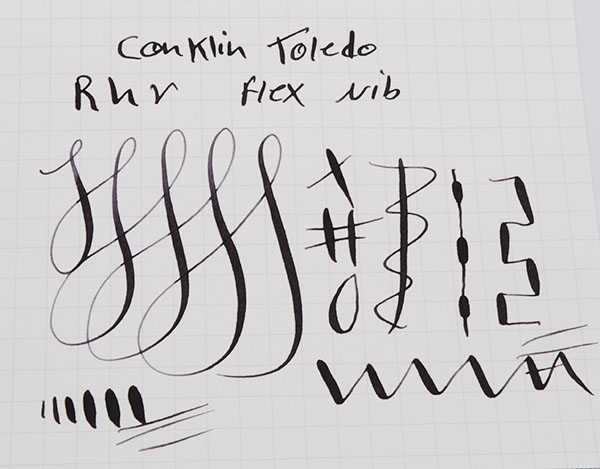 Conklin Toledo
Rhr flex nib